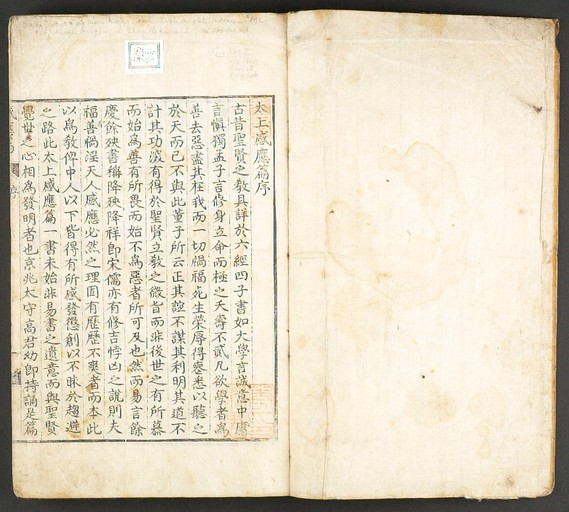 太上感應篇序
古昔聖賢之教具詳於六經四子書如大學言誠意中庸
言愼獨孟子言修身立命而極之夭壽不貳凡欲學者爲
善去惡盡其在我而一切禍福死生榮辱得喪悉以聽之
於天而已不與此董子所云正其誼不謀其利明其道不
計其功深有得於聖賢立教之微旨而非後世之有所慕
而始爲善有所畏而始不爲惡者所可及也然而易言餘
慶餘殃書稱降殃降祥卽宋儒亦有修吉悖凶之說則夫
福善禍淫天人感應必然之理固有歷歷不爽者而本此
以爲教俾中人以下皆得有所感發懲創以不昧於趨避
之路此太上感應篇一書未始非易書之遺意而與聖賢
覺世之心相爲發明者也京兆太守高君幼卽持誦是篇